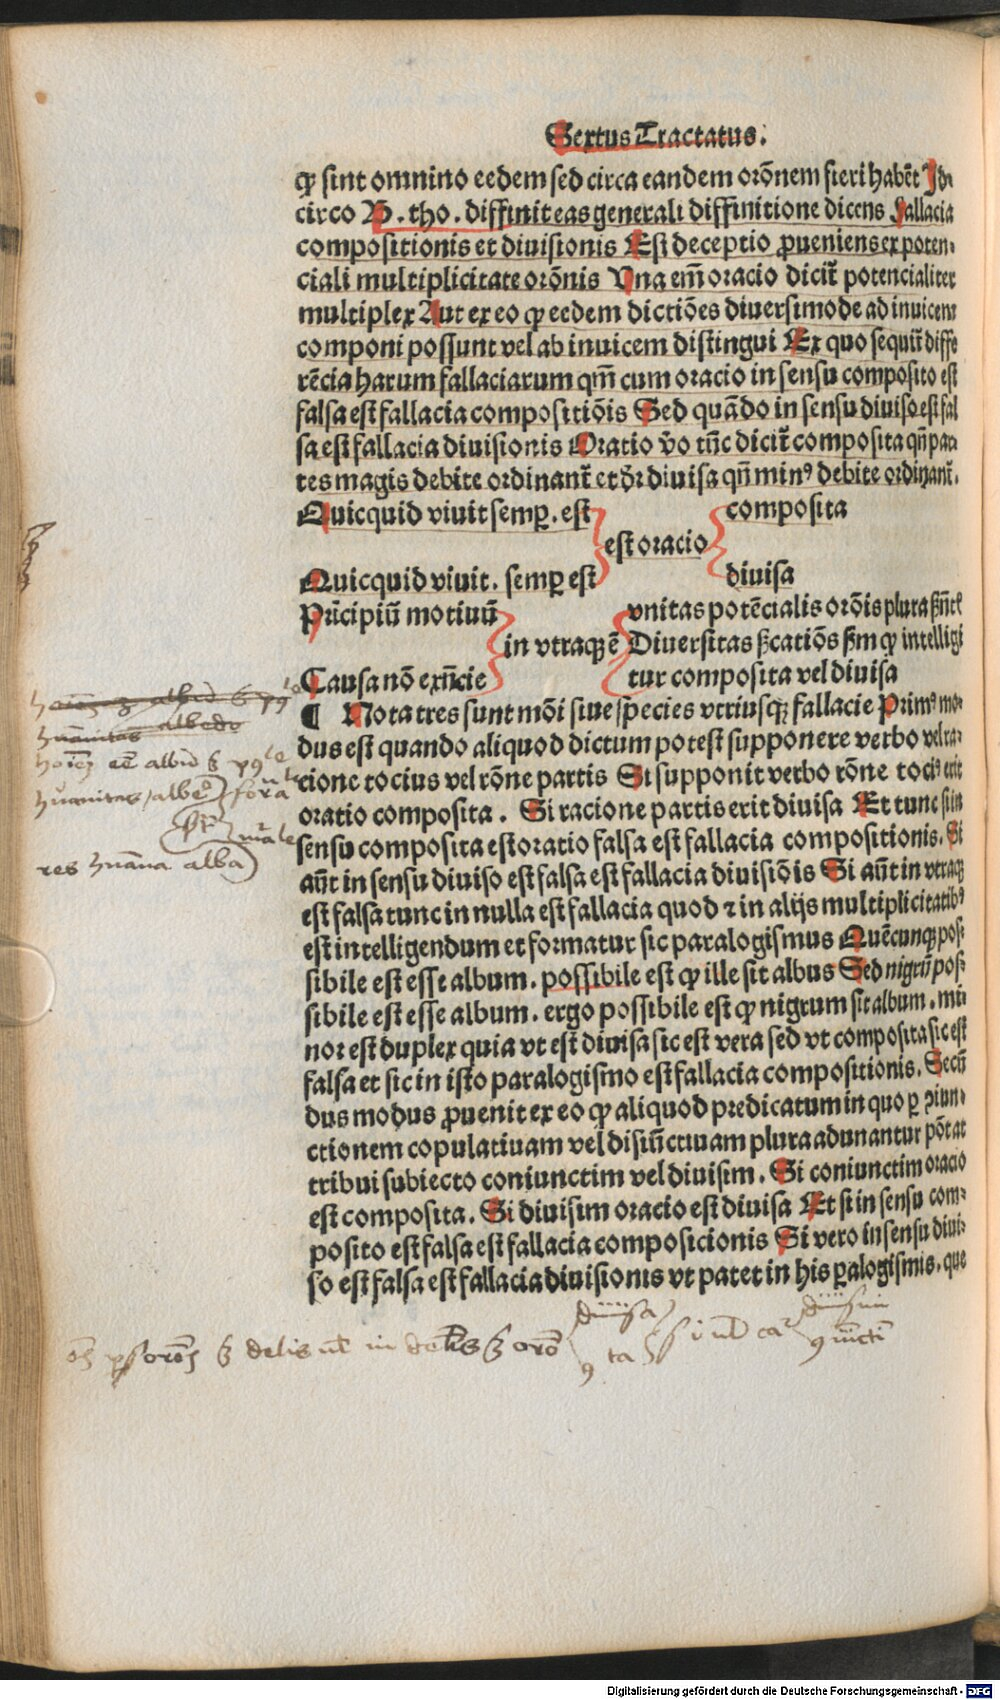 Sextus Tractatus.
ꝙ sint omnino eedem sed circa eandem orōnem fieri habēt Jd-
circo B. tho. diffinit eas generali diffinitione dicens Fallacia
compositionis et diuisionis Est deceptio ꝓueniens ex poten-
ciali multiplicitate orōnis Vna em̄ oracio dicit̄ potencialiter
multiplex Aut ex eo ꝙ eedem dictiōes diuersimode ad inuicem
componi possunt vel ab inuicem distingui Ex quo sequit̄ diffe
rēcia harum fallaciarum qm̄ cum oracio in sensu composito est
falsa est fallacia compositiōis Sed quādo in sensu diuiso est fal
sa est fallacia diuisionis Oratio v̄o tūc dicit̄ composita qn̄ par
tes magis debite ordinant̄ et dr̄ diuisa qn̄ minꝰ debite ordinant̄.
Quicquid viuit semꝑ. est
composita
est oracio
Quicquid viuit. semꝑ est
diuisa
Prīcipiū motiuū
vnitas potēcialis orōis plura
in vtraqꝫ ē
Diuersitas ẜcatiōs ẜm ꝙ intelligi
Causa nō exn̄cie
tur composita vel diuisa
¶ Nota tres sunt mōi siue species vtriusqꝫ fallacie Primꝰ mo-
dus est quando aliquod dictum potest supponere verbo vel ra-
cione tocius vel rōne partis Si supponit verbo rōne tociꝰ erit
oratio composita. Si racione partis erit diuisa Et tunc si in
sensu composita est oratio falsa est fallacia compositionis. Si
aūt in sensu diuiso est falsa est fallacia diuisiōis Si aūt in vtraqꝫ
est falsa tunc in nulla est fallacia quod ⁊ in alijs multiplicitatibꝰ
est intelligendum et formatur sic paralogismus Quēcunqꝫ pos-
sibile est esse album. possibile est ꝙ ille sit albus Sed nigrū pos-
sibile est esse album. ergo possibile est ꝙ nigrum sit album. mi-
nor est duplex quia vt est diuisa sic est vera sed vt composita sic est
falsa et sic in isto paralogismo est fallacia compositionis. Secū
dus modus ꝓuenit ex eo ꝙ aliquod predicatum in quo ꝑ ↄiun-
ctionem copulatiuam vel disiūctiuam plura adunantur pōt at
tribui subiecto coniunctim vel diuisim. Si coniunctim oracio
est composita. Si diuisim oracio est diuisa Et si in sensu com-
posito est falsa est fallacia composicionis Si vero in sensu diui-
so est falsa est fallacia diuisionis vt patet in his ꝑalogismis. que
res huāna alba
Digitalisierung gefördert durch die Deutsche Forschungsgemeinschaft - DFG